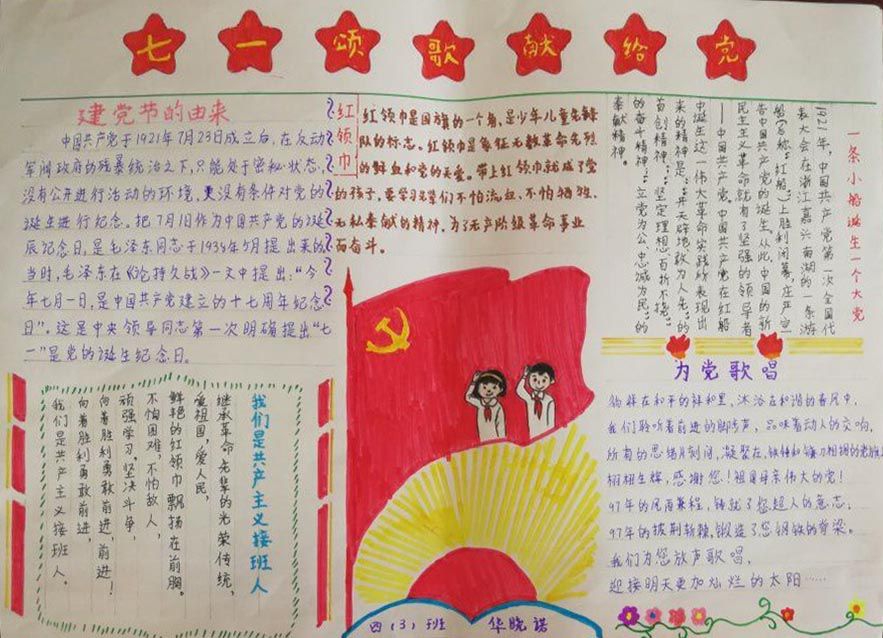 七一颂歌献给党
建党节的由来
中国共产党于1921年7月23日成立后，在反动
军阀政府的残暴统治之下，只能处于密秘状态，
没有公开进行活动的环境，更没有条件对党的
诞生进行纪念。把7月1日作为中国共产党的诞
辰纪念日，是毛泽东同志于1938年5月提出来的。
当时，毛泽东在《论持久战》一文中提出："今
年七月一日，是中国共产党建立的十七周年纪念
日"。这是中央领导同志第一次明确提出"七
一"是党的诞生纪念日。
红领巾
红领巾是国旗的一个角，是少年儿童先锋
队的标志。红领巾是象征无数革命先烈
的鲜血和党的关爱。带上红领巾就成了党
的孩子，要学习先辈们不怕流血、不怕牺牲，
无私奉献的精神，为了无产阶级革命事业
而奋斗。
一条小船诞生一个大党
1921年，中国共产党第一次全国代
表大会在浙江嘉兴南湖的一条游
船(后称"红船")上胜利闭幕，庄严宣
告中国共产党的诞生，从此中国的新
民主主义革命就有了坚强的领导者
——中国共产党。中国共产党在红船
中诞生这一伟大革命实践所表现出
来的精神是："开天辟地、敢为人先"的
首创精神；"坚定理想、百折不挠"
的奋斗精神；"立党为公、忠诚为民"的
奉献精神。
我们是共产主义接班人
我们是共产主义接班人
继承革命先辈的光荣传统，
爱祖国，爱人民，
鲜艳的红领巾飘扬在前胸。
不怕困难，不怕敌人，
顽强学习，坚决斗争，
向着胜利勇敢前进，前进！
向着胜利勇敢前进，
我们是共产主义接班人。
为党歌唱
徜徉在和平的祥和里，沐浴在和谐的春风中，
我们聆听着前进的脚步声，品味着动人的交响，
所有的思绪片刻间，凝聚在，铁锤和镰刀相拥的党旗
栩栩生辉，感谢您！祖国母亲伟大的党！
97年的风雨兼程，铸就了您超人的意志；
97年的披荆斩棘，锻造了您钢铁的脊梁。
我们为您放声歌唱，
迎接明天更加灿烂的太阳……
四(3)班 华晓诺